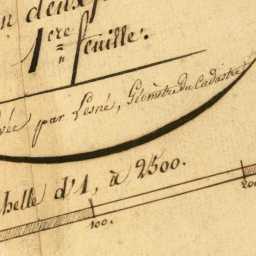 en deux
1.ere feuille.
vée par Lesné, Géomètre du Cadastre
helle d'1, à 2500.
100.
200